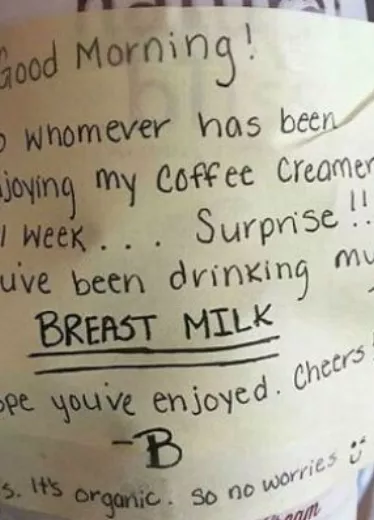 Good Morning!
o whomever has been
joying my coffee creamer
l week.... Surprise!!
uve been drinking my
BREAST MILK
ope youive enjoyed. Cheers!
-B
s. It's organic. So no worries
eam